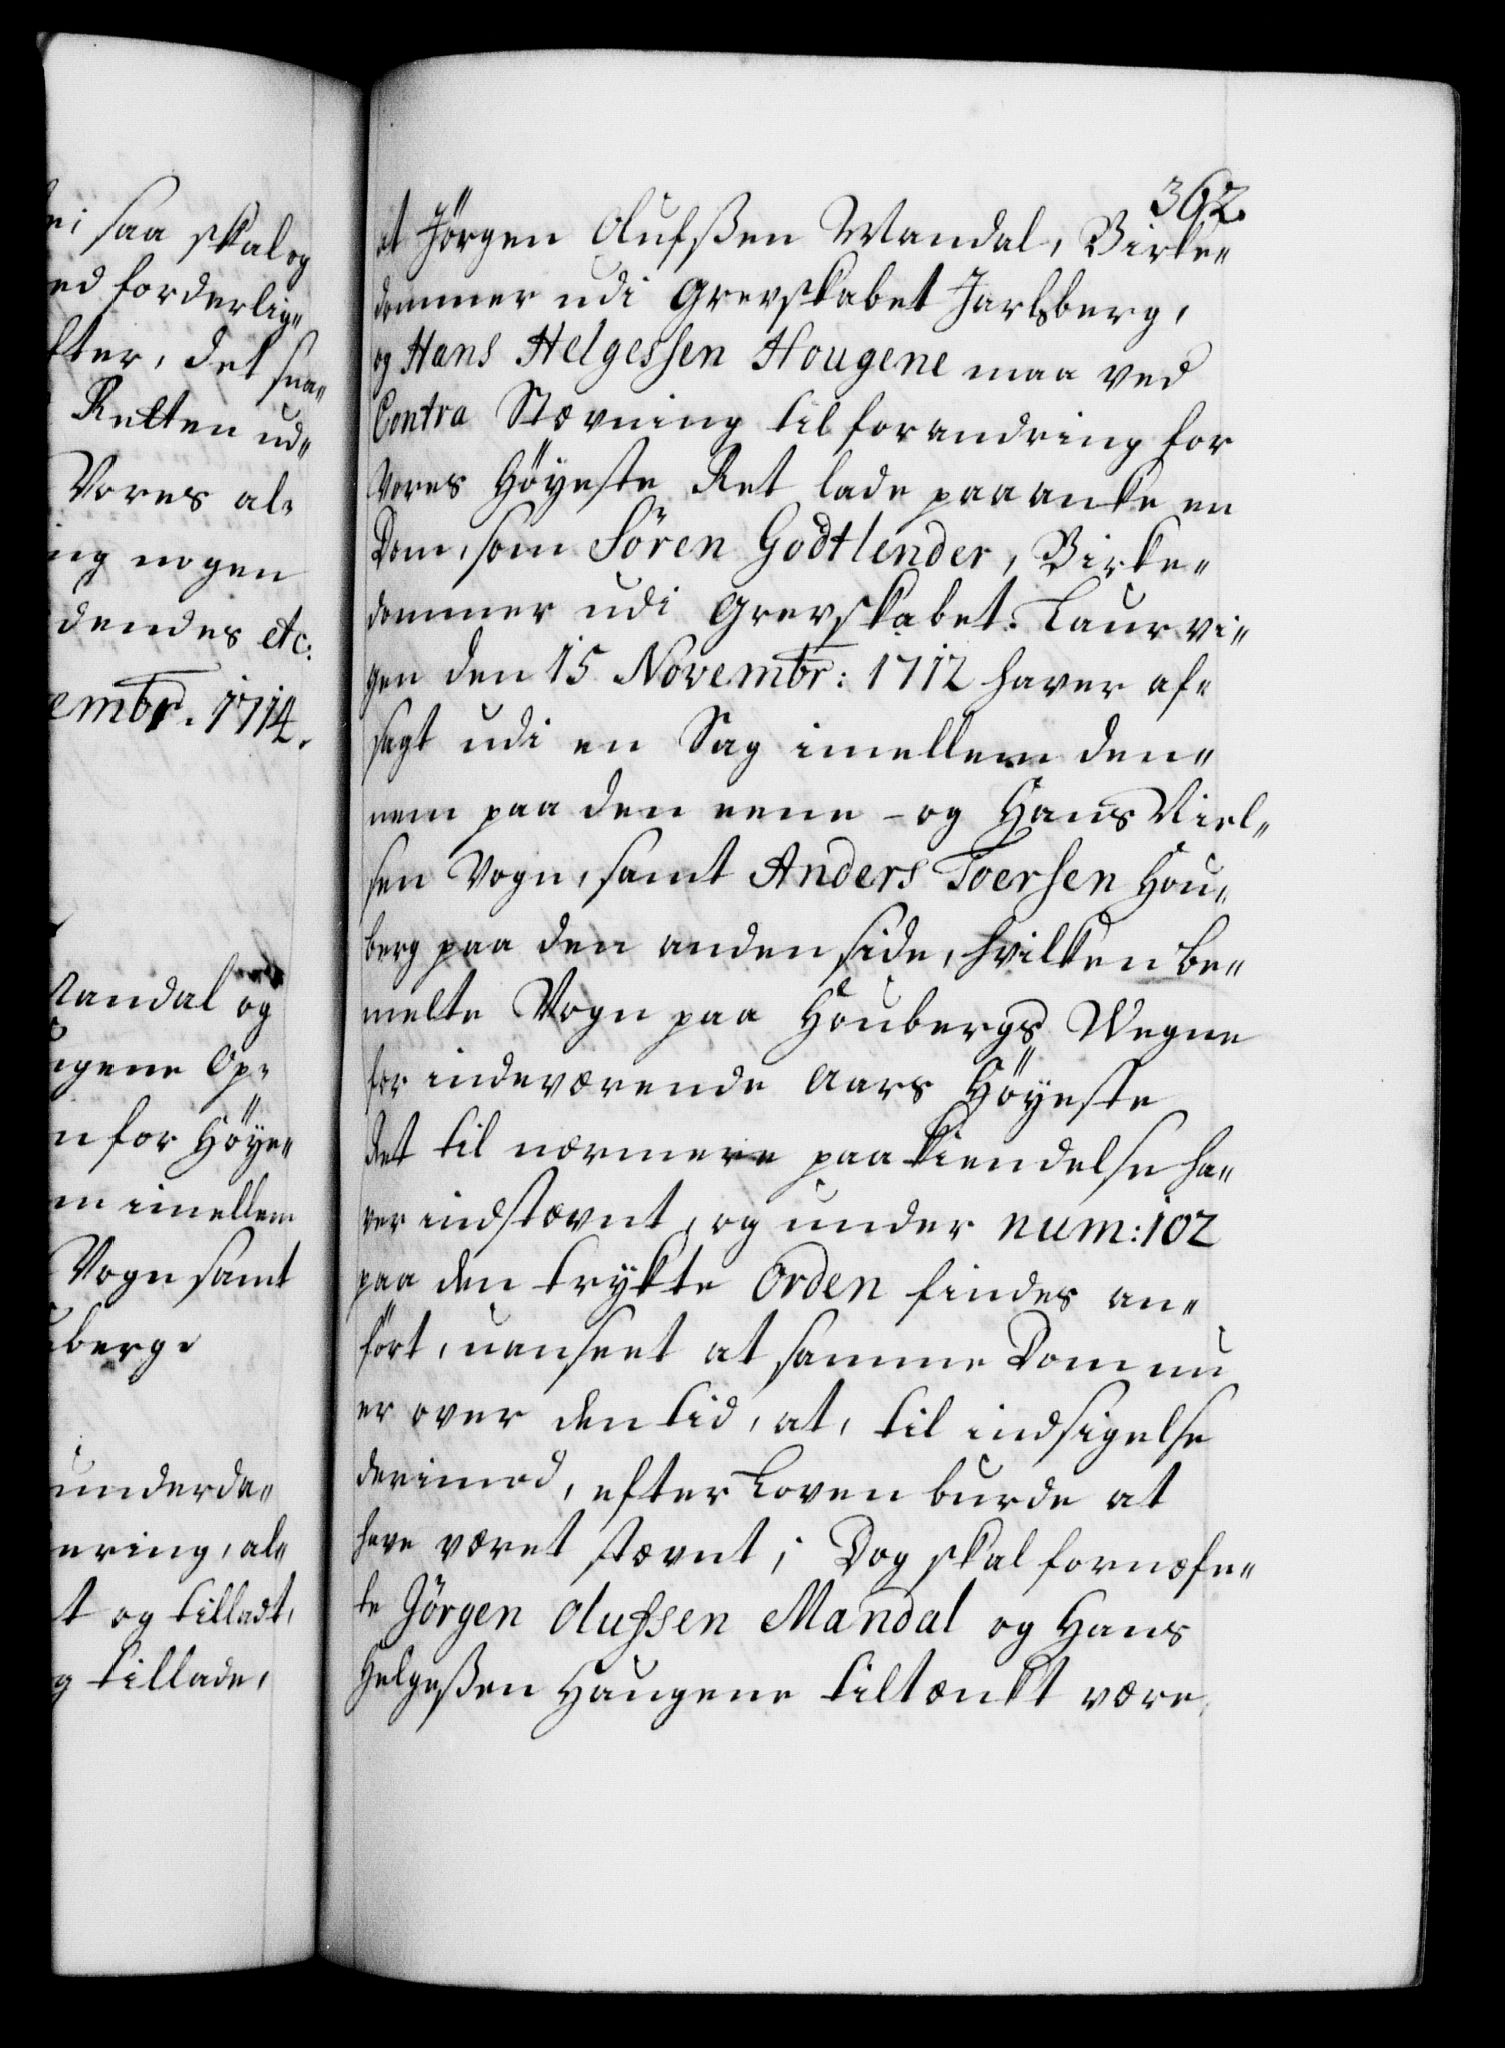 ei saa skal og
ed forderlig„
fter, det saa„
Retten ud„
Vores al„
ing nogen
dendes etc:
embr. 1714.
Mandal og
ugene Op„
n for Höye„
m imellem
Vogn samt
uberg.
underda„
nering, al„
t og tilladt,
g tillade,
362.
at Jörgen Olufsßen Mandal, Birke„
dommer udi Grevskabet Jarlsberg,
og Hans Helgessen Hougene maa ved
Contra Stævning til forandring for
Vores Höyeste Ret lade paaanke en
Dom, som Sören Godtlender, Birke„
dommer udi Grevskabet Laurvi„
gen den 15 Novembr: 1712 haver af„
sagt udi en Sag imellem den„
nem paa den eene - og Hans Niel„
sen Vogn, samt Anders Toersen Hou„
berg paa den anden side, hvilken be„
melte Vogn paa Houbergs Wegne
for indeværende Aars Höyeste
Ret til nærmere paakiendelse ha„
ver indstævnt, og under num: 102
paa den trykte Orden findes an„
fört, uanseet at samme Dom nu
er over den tid, at, til indsigelse
derimod, efter Loven burde at
have været stævnt; Dog skal fornæfn„
te Jörgen Olufssen Mandal og Hans
Helgeßen Haugene tiltænkt være,